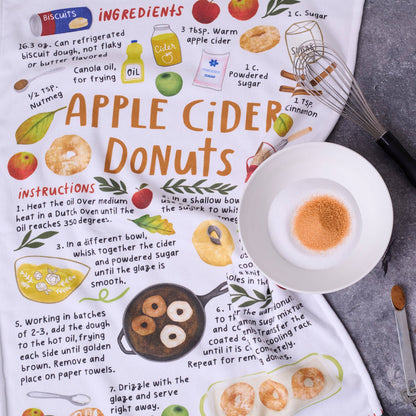 BISCUITS
INGREDIENTS
16.3 oz. Can refrigerated
biscuit dough, not flaky
or butter flavored
Cider
3 Tbsp. Warm
apple cider
1 C. Sugar
Canola oil,
for frying
Oil
1 C.
Powdered
Sugar
1 Tsp.
Cinnamon
1/2 Tsp.
Nutmeg
APPLE CIDER
DONUTS
INSTRUCTIONS
1. Heat the oil over medium
heat in a Dutch oven until the
oil reaches 350 degrees.
in a shallow
bowl,
the sugar to
3. In a different bowl,
whisk together the cider
and powdered sugar
until the glaze is
smooth.
holes in the
5. Working in batches
of 2-3, add the dough
to the hot oil, frying
each side until golden
brown. Remove and
place on paper towels.
6.
sugar mixture
until it is
Repeat for remaining donuts.
7. Drizzle with the
glaze and serve
right away.